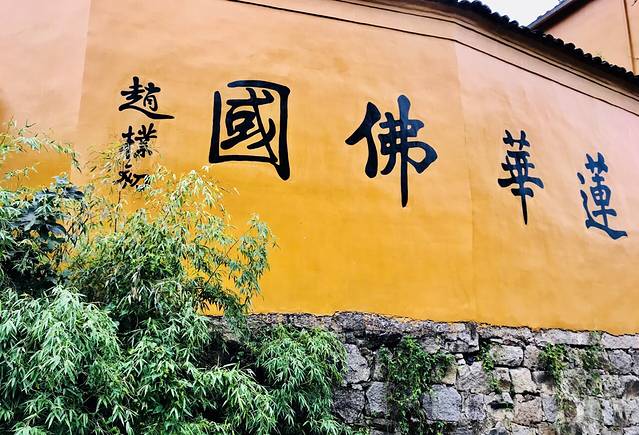 蓮華佛國
趙樸初